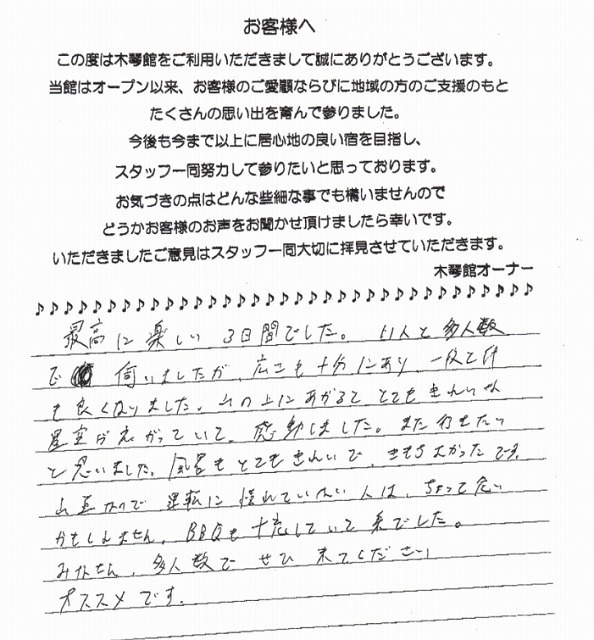 お客様へ
この度は木琴館をご利用いただきまして誠にありがとうございます。
当館はオープン以来、お客様のご愛顧ならびに地域の方のご支援のもと
たくさんの思い出を育んで参りました。
今後も今まで以上に居心地の良い宿を目指し、
スタッフ一同努力して参りたいと思っております。
お気づきの点はどんな些細な事でも構いませんので
どうかお客様のお声をお聞かせ頂けましたら幸いです。
いただきましたご意見はスタッフ一同大切に拝見させていただきます。
木琴館オーナー
♪♪♪♪♪♪♪♪♪♪♪♪♪♪♪♪♪♪♪♪♪♪♪♪♪♪♪♪♪♪♪♪♪♪
最高に楽しい3日間でした。11人と多人数
で伺いましたが、広さも十分にあり、一段と仲
も良くなりました。山の上にあがると、とてもきれいな
星空が広がっていて、感動しました。また行きたい
と思いました。風呂もとてもきれいで、きもちよかったです。
山道なので運転に慣れていない人は、ちょっと危い
かもしれません。BBQも十充していて楽でした。
みなさん、多人数でぜひ来てください!
オススメです。